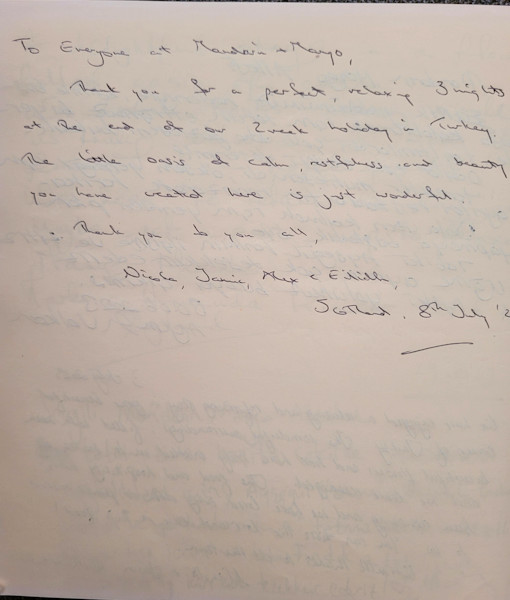 To Everyone at Mandarin + Mango,
Thank you for a perfect, relaxing 3 nights
at the end of our 2 week holiday in Turkey.
The little oasis of calm, restfulness and beauty
you have created here is just wonderful.
Thank you to you all,
Nicola, Jamie, Alex & Edith,
Scotland, 8th July '2